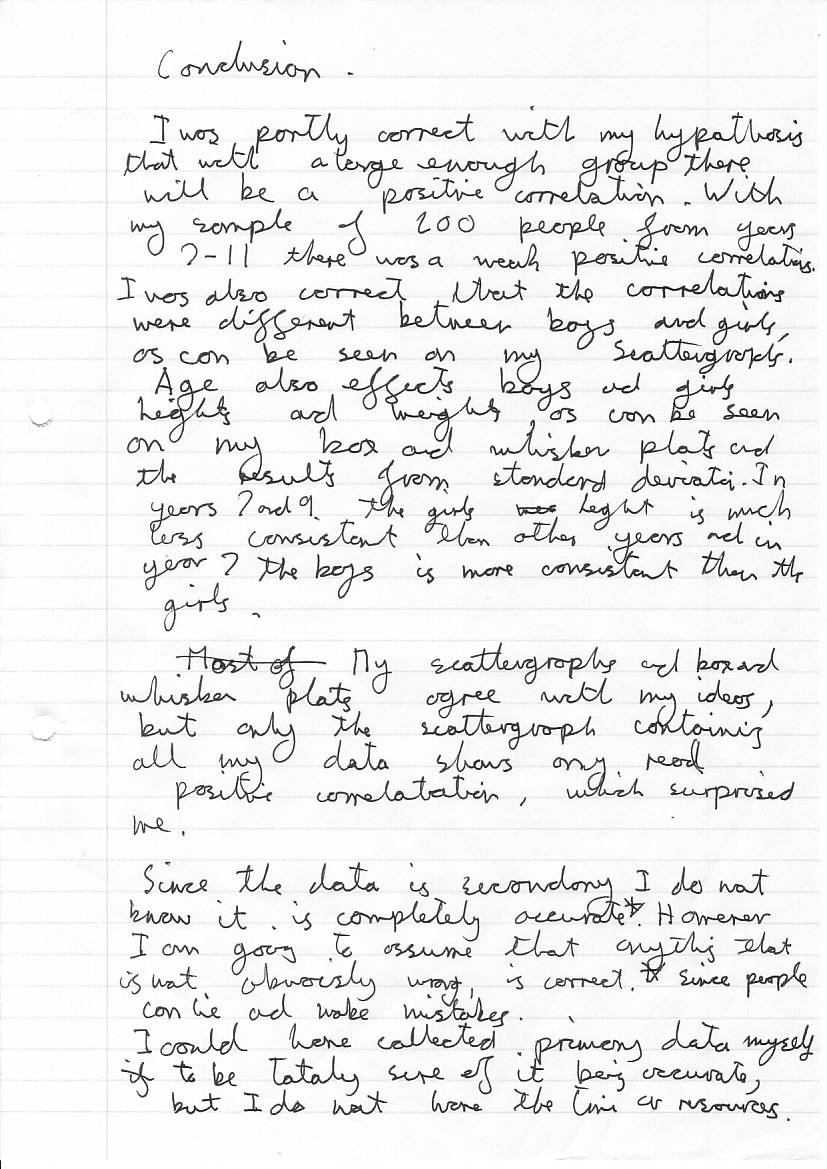 Conclusion.
I was partly correct with my hypothosis
that with a large enough group there
will be a positive correlation. With
my sample of 200 people from years
7-11 there was a weak positive correlation.
I was also correct that the correlations
were different between boys and girls,
as can be seen on my scattergraphs.
Age also effects boys ad girls
heights ad weights, as can be seen
on my box ad whisker plots ad
the results from standard deviati. In
years 7 and 9 the girls was height is much
less consistent then other years ad in
year 7 the boys is more consistent than the
girls.
Most of My scattergraphs ad box ad
whisker plots agree with my ideas,
but only the scattergraph containing
all my data shows any real
positive correlatation, which surprised
me.
Since the data is secondary I do not
know it is completely accurate*. However
I am going to assume that anything that
is not obviously wrong, is correct. * since people
can lie ad make mistakes.
I could have collected primary data myself
if to be totaly sure of it being accurate,
but I do not have the time or resources.